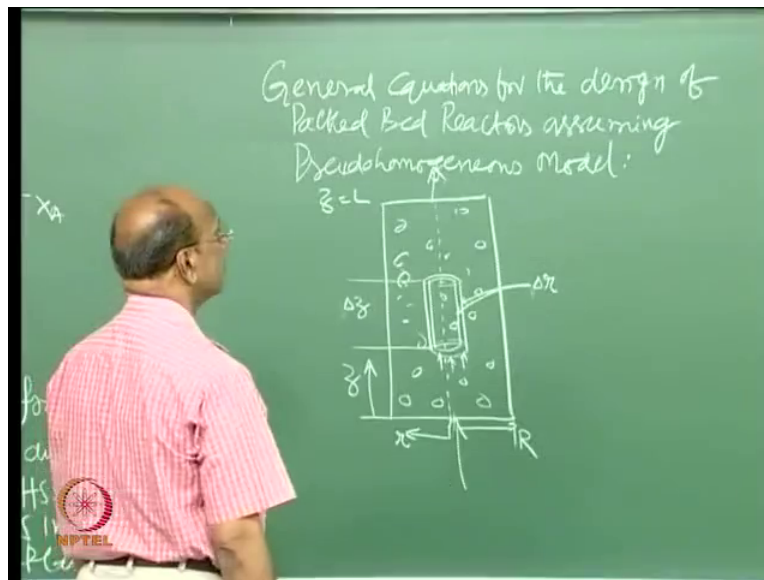 General Equations for the design of
Packed Bed Reactors assuming
Pseudohomogeneous Model:
z=L
XA
Δz
Δr
z
r
R
NPTEL